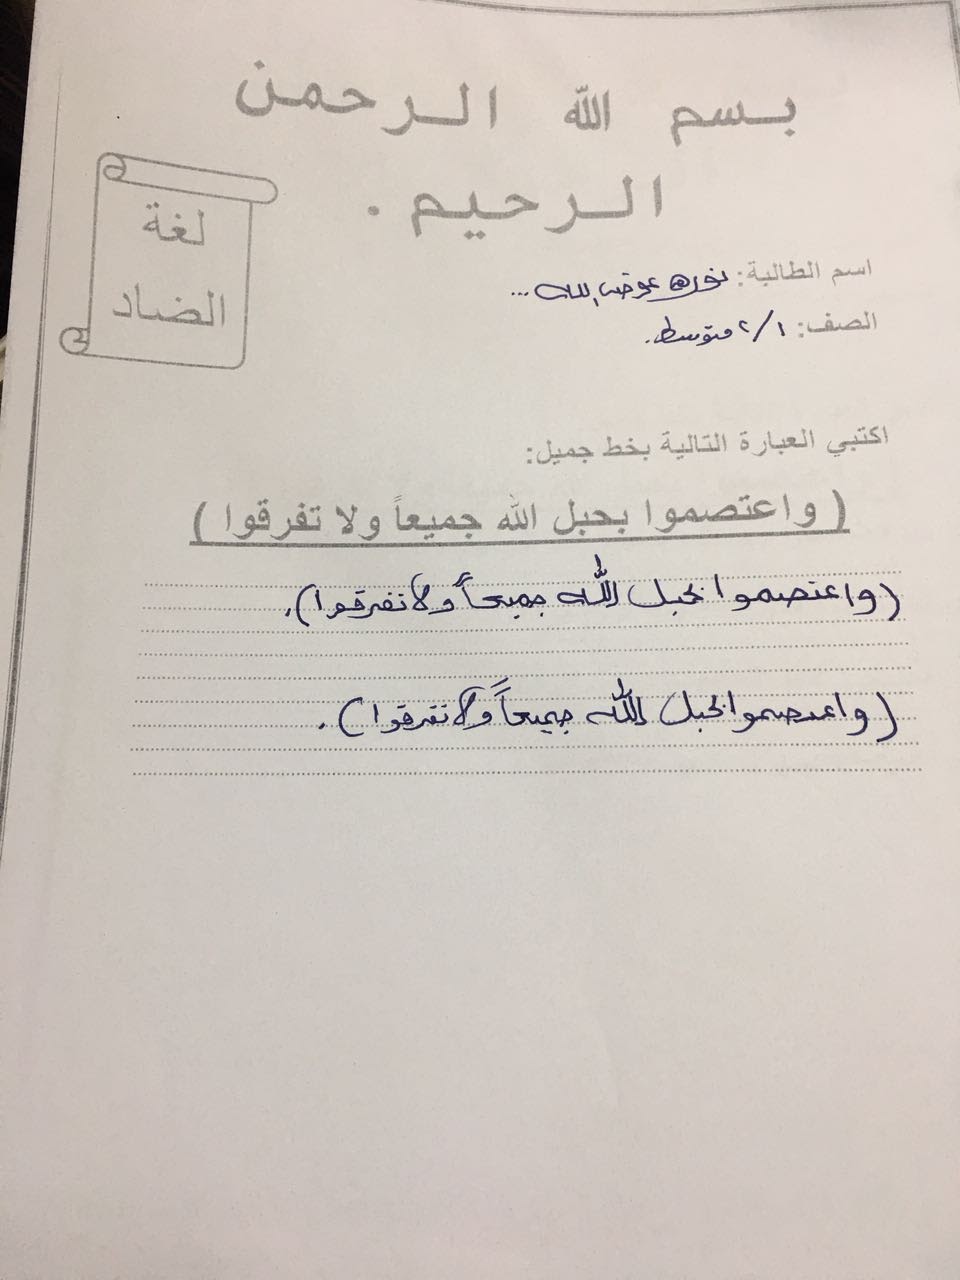 بسم الله الرحمن
الرحيم .
لغة
الضاد
اسم الطالبة: نوره عوض الله ...
الصف: ٢/١ متوسط.
اكتبي العبارة التالية بخط جميل:
( واعتصموا بحبل الله جميعاً ولا تفرقوا )
(واعتصموا بحبل الله جميعاً ولا تفرقوا).
(واعتصموا بحبل الله جميعاً ولا تفرقوا).